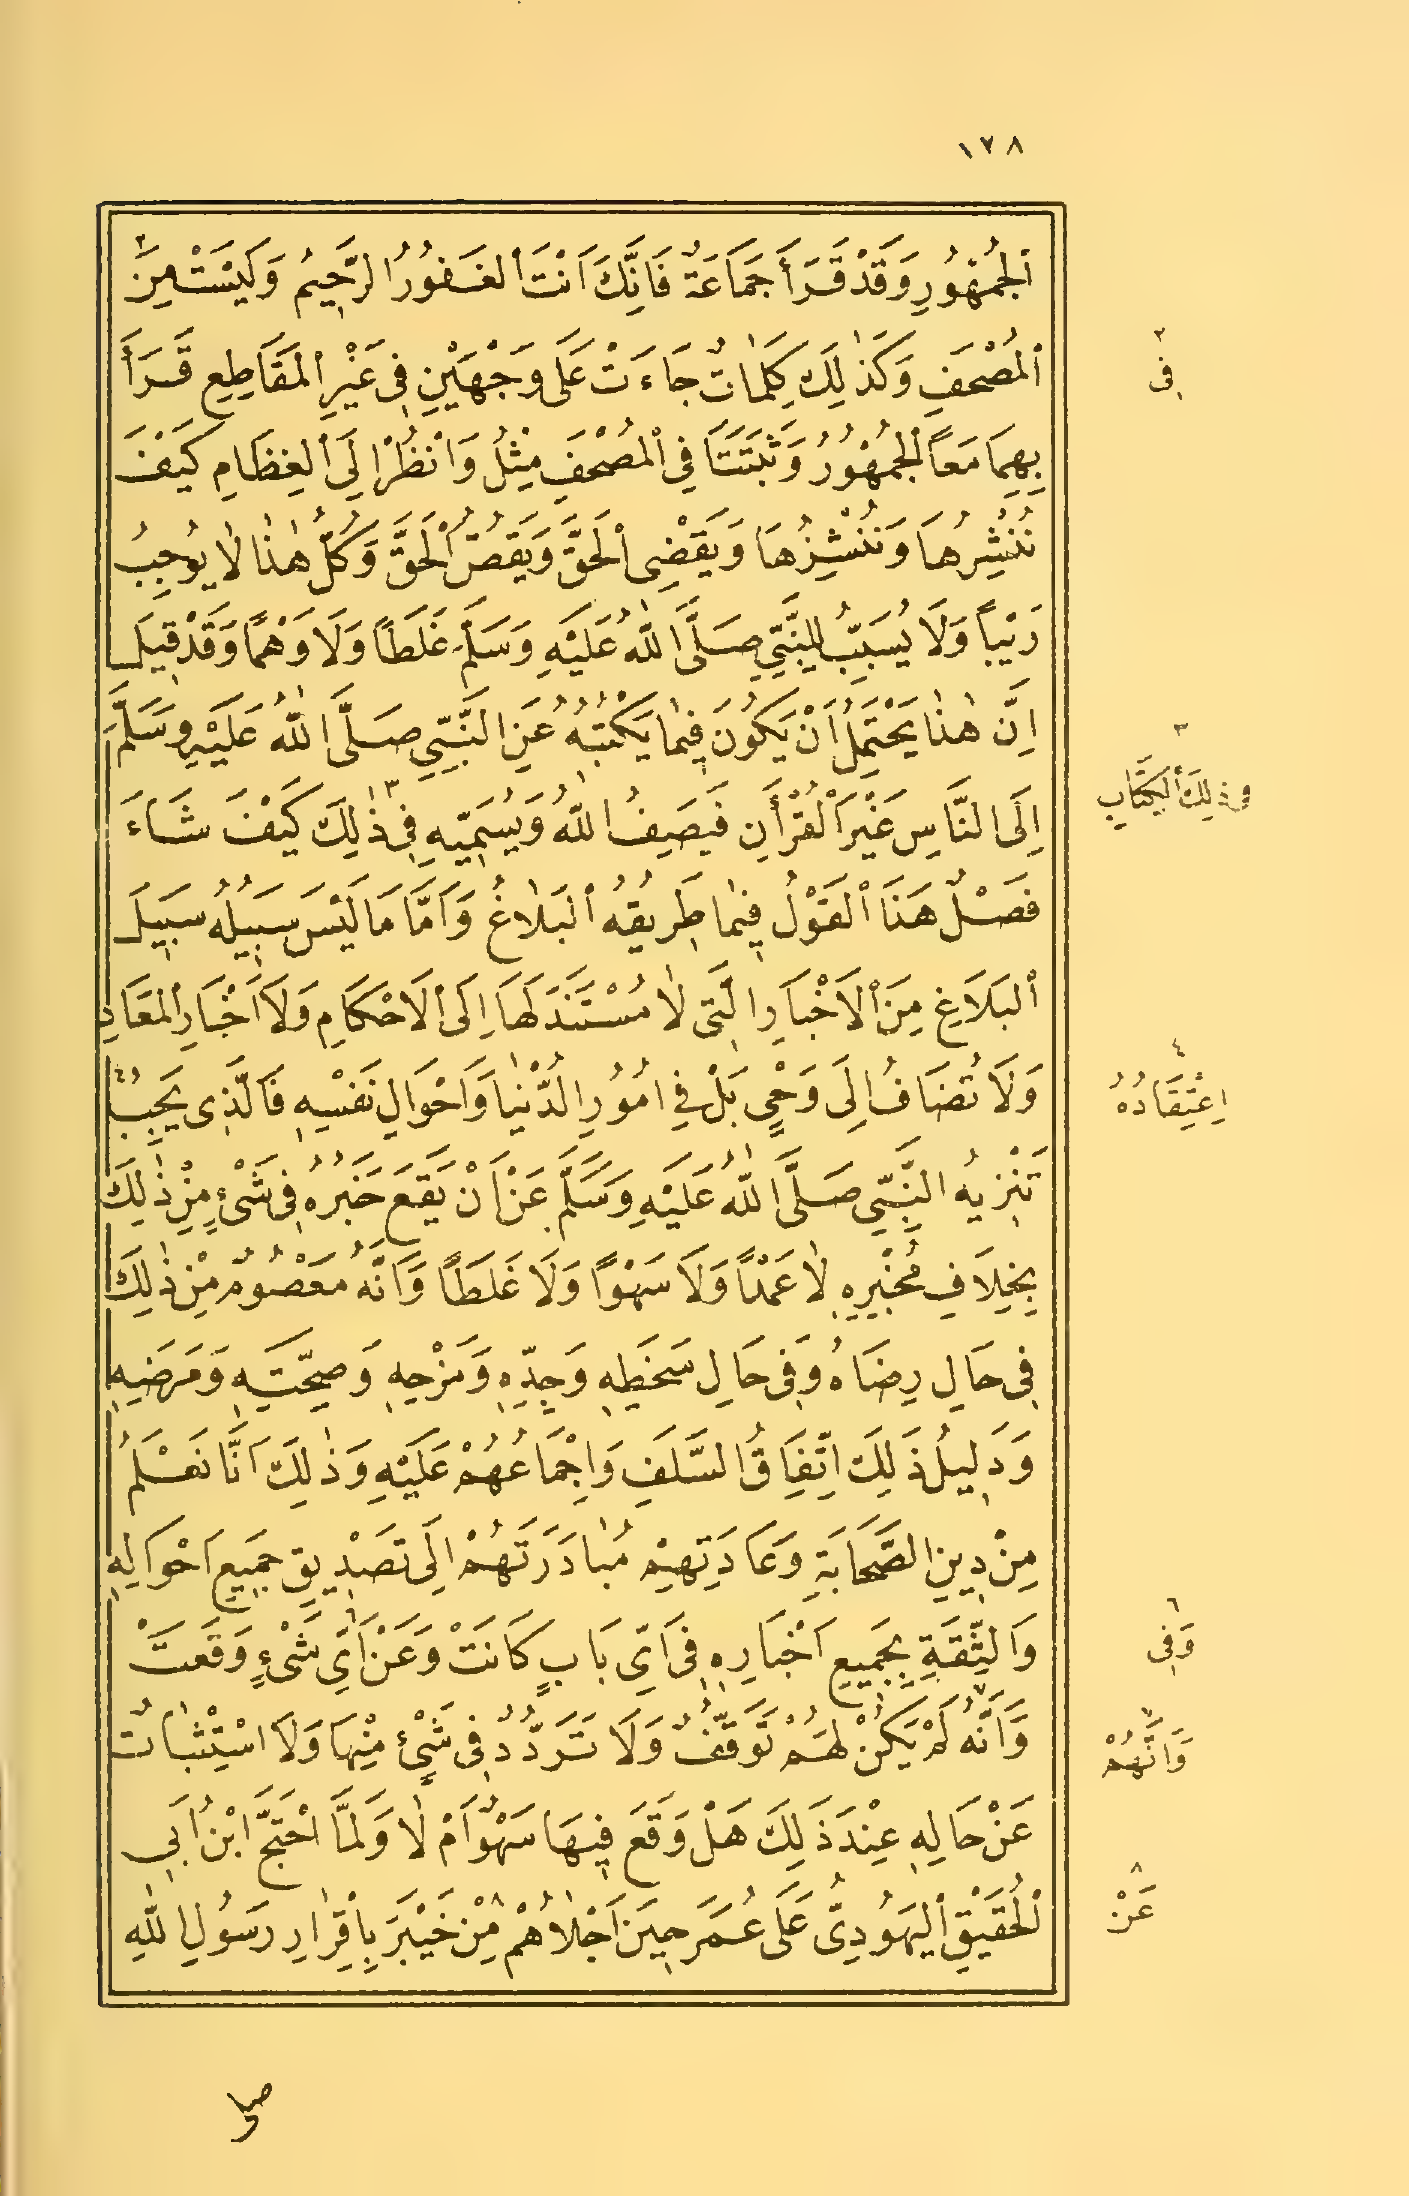 ١٧٨
اَلْجُمْهُورِ وَقَدْ قَرَأَ جَمَاعَةٌ فَاِنَّكَ اَنْتَ الْغَفُورُ الرَّحِيمُ وَلَيْسَتْ مِنَ ٢
اَلْمُصْحَفِ وَكَذٰلِكَ كَلِمَاتٌ جَاءَتْ عَلَى وَجْهَيْنِ فِى غَيْرِ الْمَقَاطِعِ قَرَأَ
بِهِمَا مَعاً الْجُمْهُورُ وَثَبَتَتَا فِى الْمُصْحَفِ مِثْلُ وَانْظُرْ اِلَى الْعِظَامِ كَيْفَ
نُنْشِرُهَا وَنُنْشِزُهَا وَيَقْضِى الْحَقَّ وَيَقُصُّ الْحَقَّ وَكُلُّ هٰذَا لَا يُوجِبُ
رَيْباً وَلَا يُسَبِّبُ لِلنَّبِيِّ صَلَّى اللهُ عَلَيْهِ وَسَلَّمَ غَلَطًا وَلَا وَهْمًا وَقَدْ قِيلَ
اِنَّ هٰذَا يَحْتَمِلُ أَنْ يَكُونَ فِيمَا يَكْتُبُهُ عَنِ النَّبِيِّ صَلَّى اللهُ عَلَيْهِ وَسَلَّمَ
اِلَى النَّاسِ غَيْرَ الْقُرْأٰنِ فَيَصِفُ اللهَ وَيُسَمِّيهِ فِى ذٰلِكَ ٣ كَيْفَ شَاءَ
فَصْلٌ هَذَا الْقَوْلُ فِيمَا طَرِيقُهُ الْبَلَاغُ وَاَمَّا مَا لَيْسَ سَبِيلُهُ سَبِيلَ
اَلْبَلَاغِ مِنَ الْأَخْبَارِ الَّتِى لَا مُسْتَنَدَ لَهَا اِلَى الْأَحْكَامِ وَلَا اَخْبَارِ الْمَعَادِ
وَلَا تُضَافُ اِلَى وَحْىٍ بَلْ فِى اُمُورِ الدُّنْيَا وَاَحْوَالِ نَفْسِهِ فَالَّذِى يَجِبُ ٤
تَنْزِيهُ النَّبِيِّ صَلَّى اللهُ عَلَيْهِ وَسَلَّمَ عَنْ اَنْ يَقَعَ خَبَرُهُ فِى شَىْءٍ مِنْ ذٰلِكَ
بِخِلَافِ مُخْبَرِهِ لَا عَمْدًا وَلَا سَهْوًا وَلَا غَلَطًا وَاَنَّهُ مَعْصُومٌ مِنْ ذٰلِكَ
فِى حَالِ رِضَاهُ وَفِى حَالِ سَخَطِهِ وَجِدِّهِ وَمَزْحِهِ وَصِحَّتِهِ وَمَرَضِهِ
وَدَلِيلُ ذَلِكَ اِتِّفَاقُ السَّلَفِ وَاِجْمَاعُهُمْ عَلَيْهِ وَذٰلِكَ اَنَّا نَعْلَمُ
مِنْ دِينِ الصَّحَابَةِ وَعَادَتِهِمْ مُبَادَرَتَهُمْ اِلَى تَصْدِيقِ جَمِيعِ اَحْوَالِهِ
وَالثِّقَةِ بِجَمِيعِ اَخْبَارِهِ فِى اَىِّ بَابٍ كَانَتْ وَعَنْ اَىِّ ٦ شَىْءٍ وَقَعَتْ
وَاَنَّهُ ٧ لَمْ يَكُنْ لَهُمْ تَوَقُّفٌ وَلَا تَرَدُّدٌ فِى شَىْءٍ مِنْهَا وَلَا اسْتِثْبَاتٌ
عَنْ حَالِهِ عِنْدَ ذَلِكَ هَلْ وَقَعَ فِيهَا سَهْوٌ اَمْ لَا وَلَمَّا احْتَجَّ ابْنُ اَبِى
اَلْحُقَيْقِ الْيَهُودِىُّ عَلَى عُمَرَ حِينَ اَجْلَاهُمْ مِنْ ٨ خَيْبَرَ بِاِقْرَارِ رَسُولِ اللهِ
٢
فِى
٣
الْكِتَابِ
٤
اِعْتِقَادُهُ
٦
وَفِى
٧
وَاَنَّهُمْ
٨
عَنْ